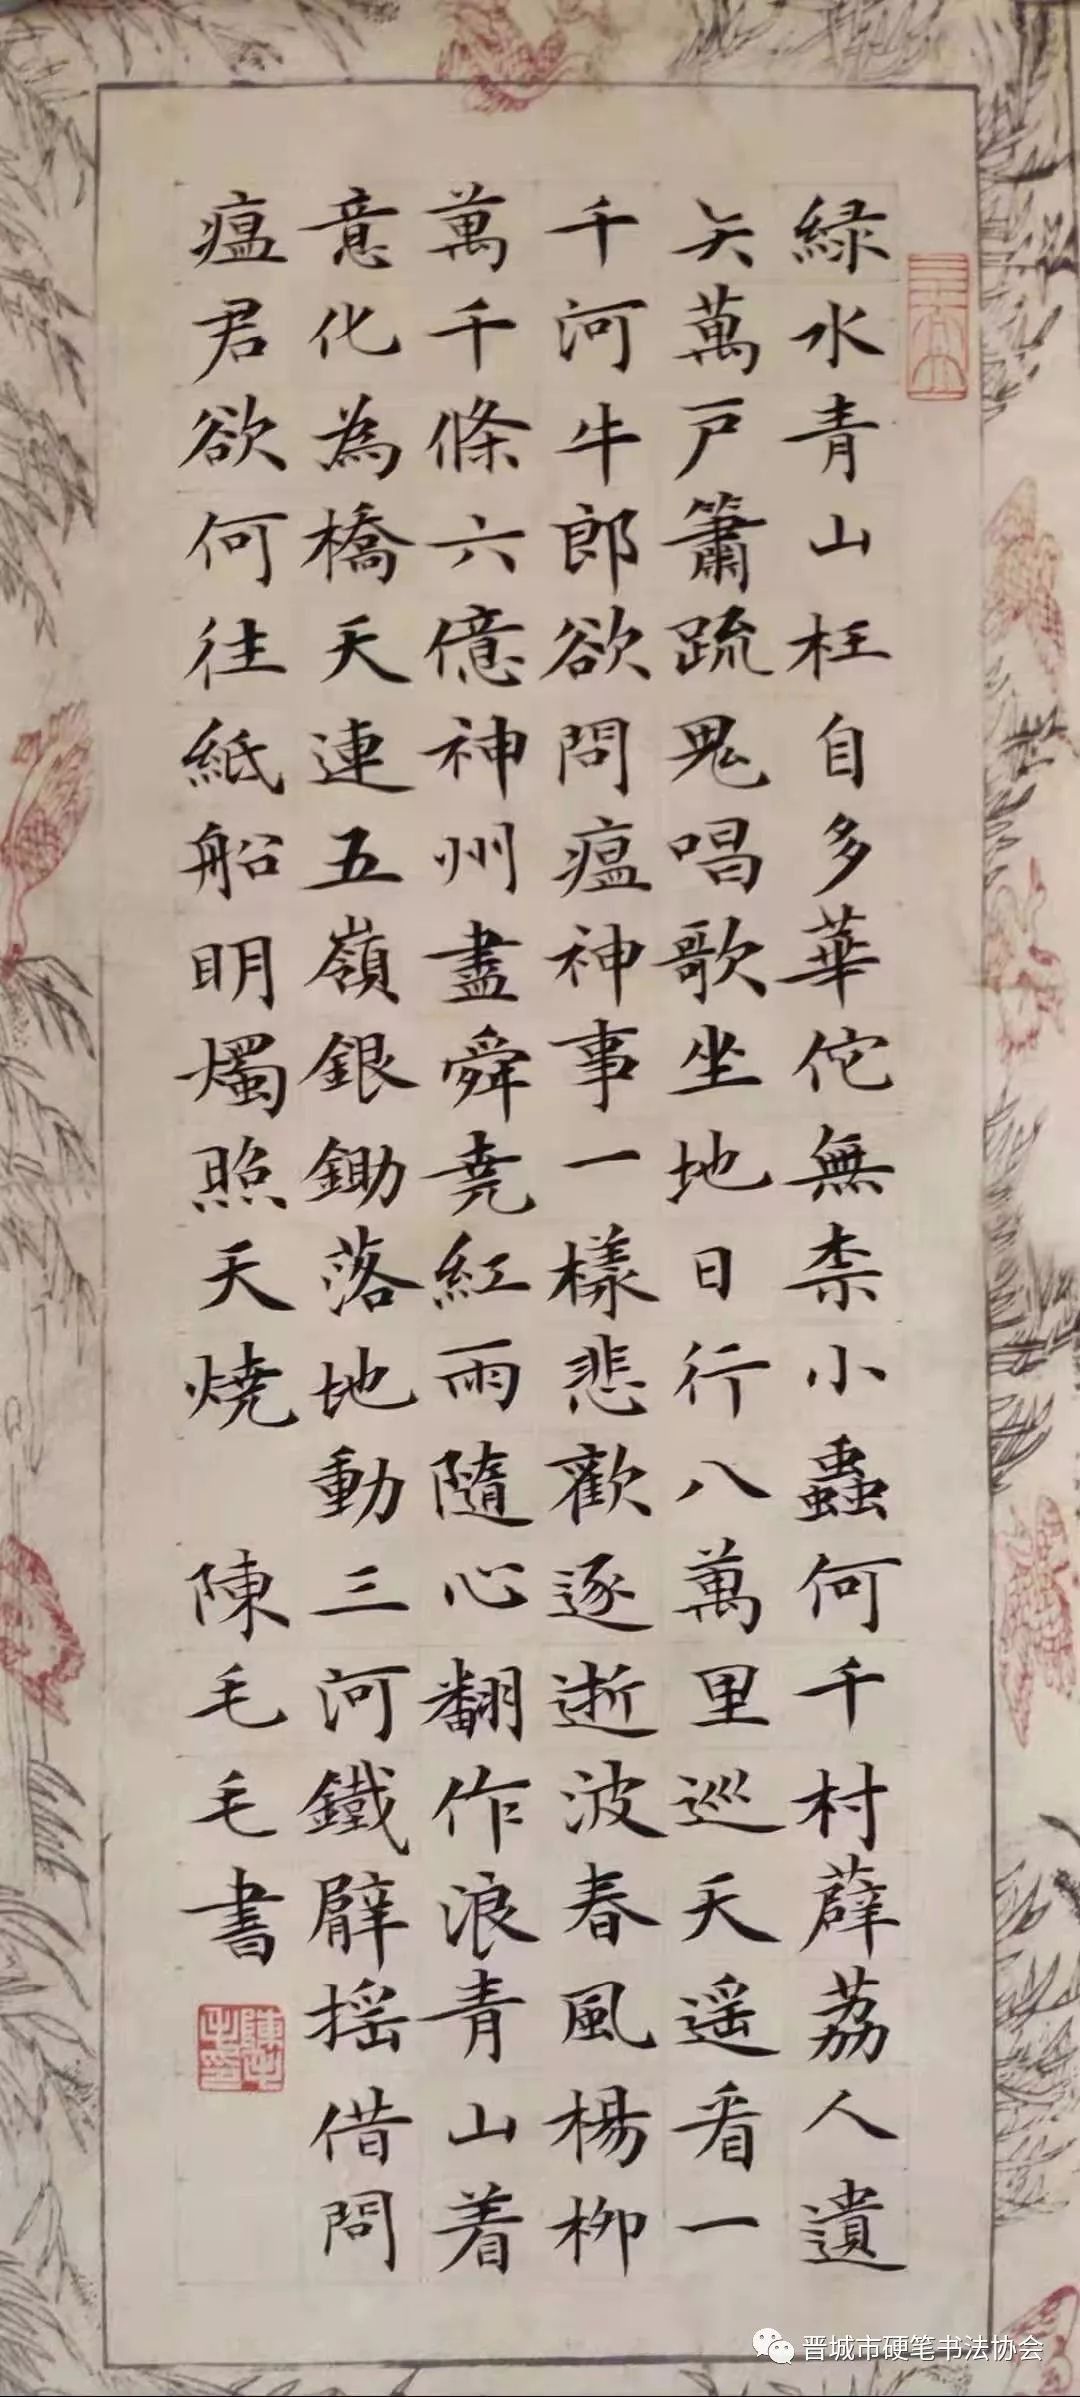 緑水青山枉自多華佗無柰小蟲何千村薜荔人遺
矢萬戸簫疏鬼唱歌坐地日行八萬里巡天遥看一
千河牛郎欲問瘟神事一樣悲歡逐逝波春風楊柳
萬千條六億神州盡舜堯紅雨隨心翻作浪青山着
意化為橋天連五嶺銀鋤落地動三河鐵臂摇借問
瘟君欲何往紙船明燭照天燒 陳毛毛書
晋城市硬笔书法协会